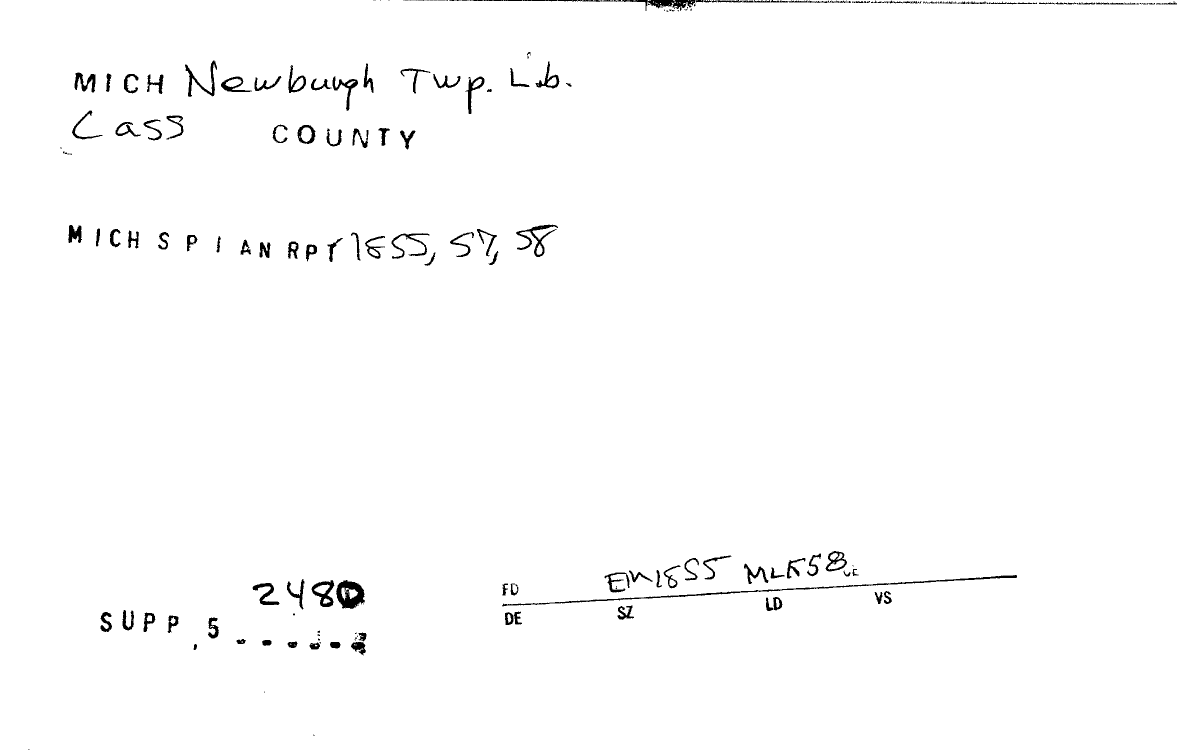 MICH Newburgh Twp. Lib.
Cass COUNTY
MICH S P I AN RPT 1855, 57, 58
2480
SUPP. 5
FD EM1855 MLK58
DE SZ LD VS